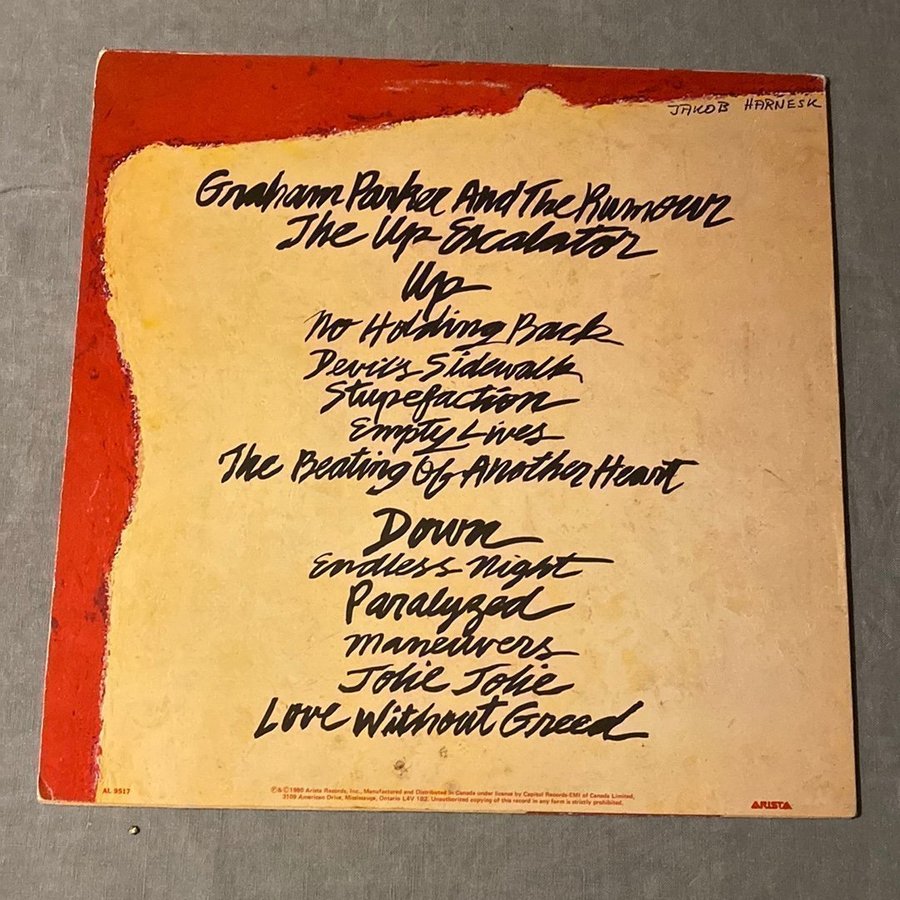 JAKOB HARNESK
Graham Parker And The Rumour
The Up Escalator
Up
No Holding Back
Devil's Sidewalk
Stupefaction
Empty Lives
The Beating Of Another Heart
Down
Endless Night
Paralyzed
Maneuvers
Jolie Jolie
Love Without Greed
AL 9517
℗&©1980 Arista Records, Inc., Manufactured and Distributed in Canada under license by Capitol Records-EMI of Canada Limited,
3109 American Drive, Mississauga, Ontario L4V 1B2. Unauthorized copying of this record in any form is strictly prohibited.
ARISTA